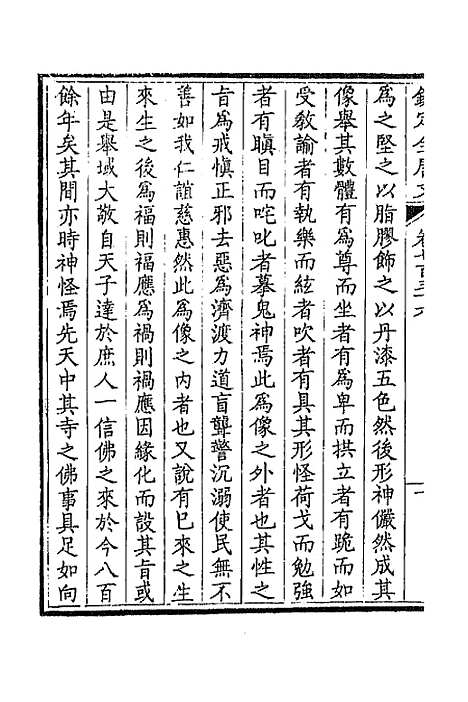 欽定全唐文　卷七百三十六
爲之堅之以脂膠飾之以丹漆五色然後形神儼然成其
像舉其數體有爲尊而坐者有爲卑而拱立者有跪而如
受教諭者有執樂而絃者吹者有具其形怪荷戈而勉強
者有瞋目而咤叱者摹鬼神焉此爲像之外者也其性之
旨爲戒愼正邪去惡爲濟渡力道盲聾警沉溺使民無不
善如我仁誼慈惠然此爲像之內者也又說有已來之生
來生之後爲福則福應爲禍則禍應因緣化而設其旨或
由是舉域大敬自天子達於庶人一信佛之來於今八百
餘年矣其間亦時神怪焉先天中其寺之佛事具足如向